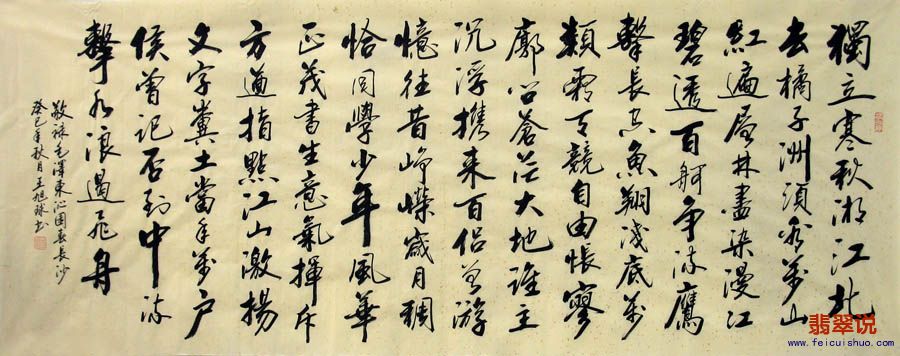 獨立寒秋湘江北
去橘子洲頭看萬山
紅遍層林盡染漫江
碧透百舸争流鷹
擊長空魚翔淺底萬
類霜天競自由悵寥
廓问蒼茫大地誰主
沉浮携来百侣曾游
憶往昔崢嶸歲月稠
恰同學少年風華
正茂書生意氣揮斥
方遒指點江山激揚
文字糞土當年萬户
侯曾記否到中流
擊水浪遏飛舟
敬錄毛澤東沁園春長沙
癸巳年秋月王旭球书
翡翠说
www.feicuishuo.com